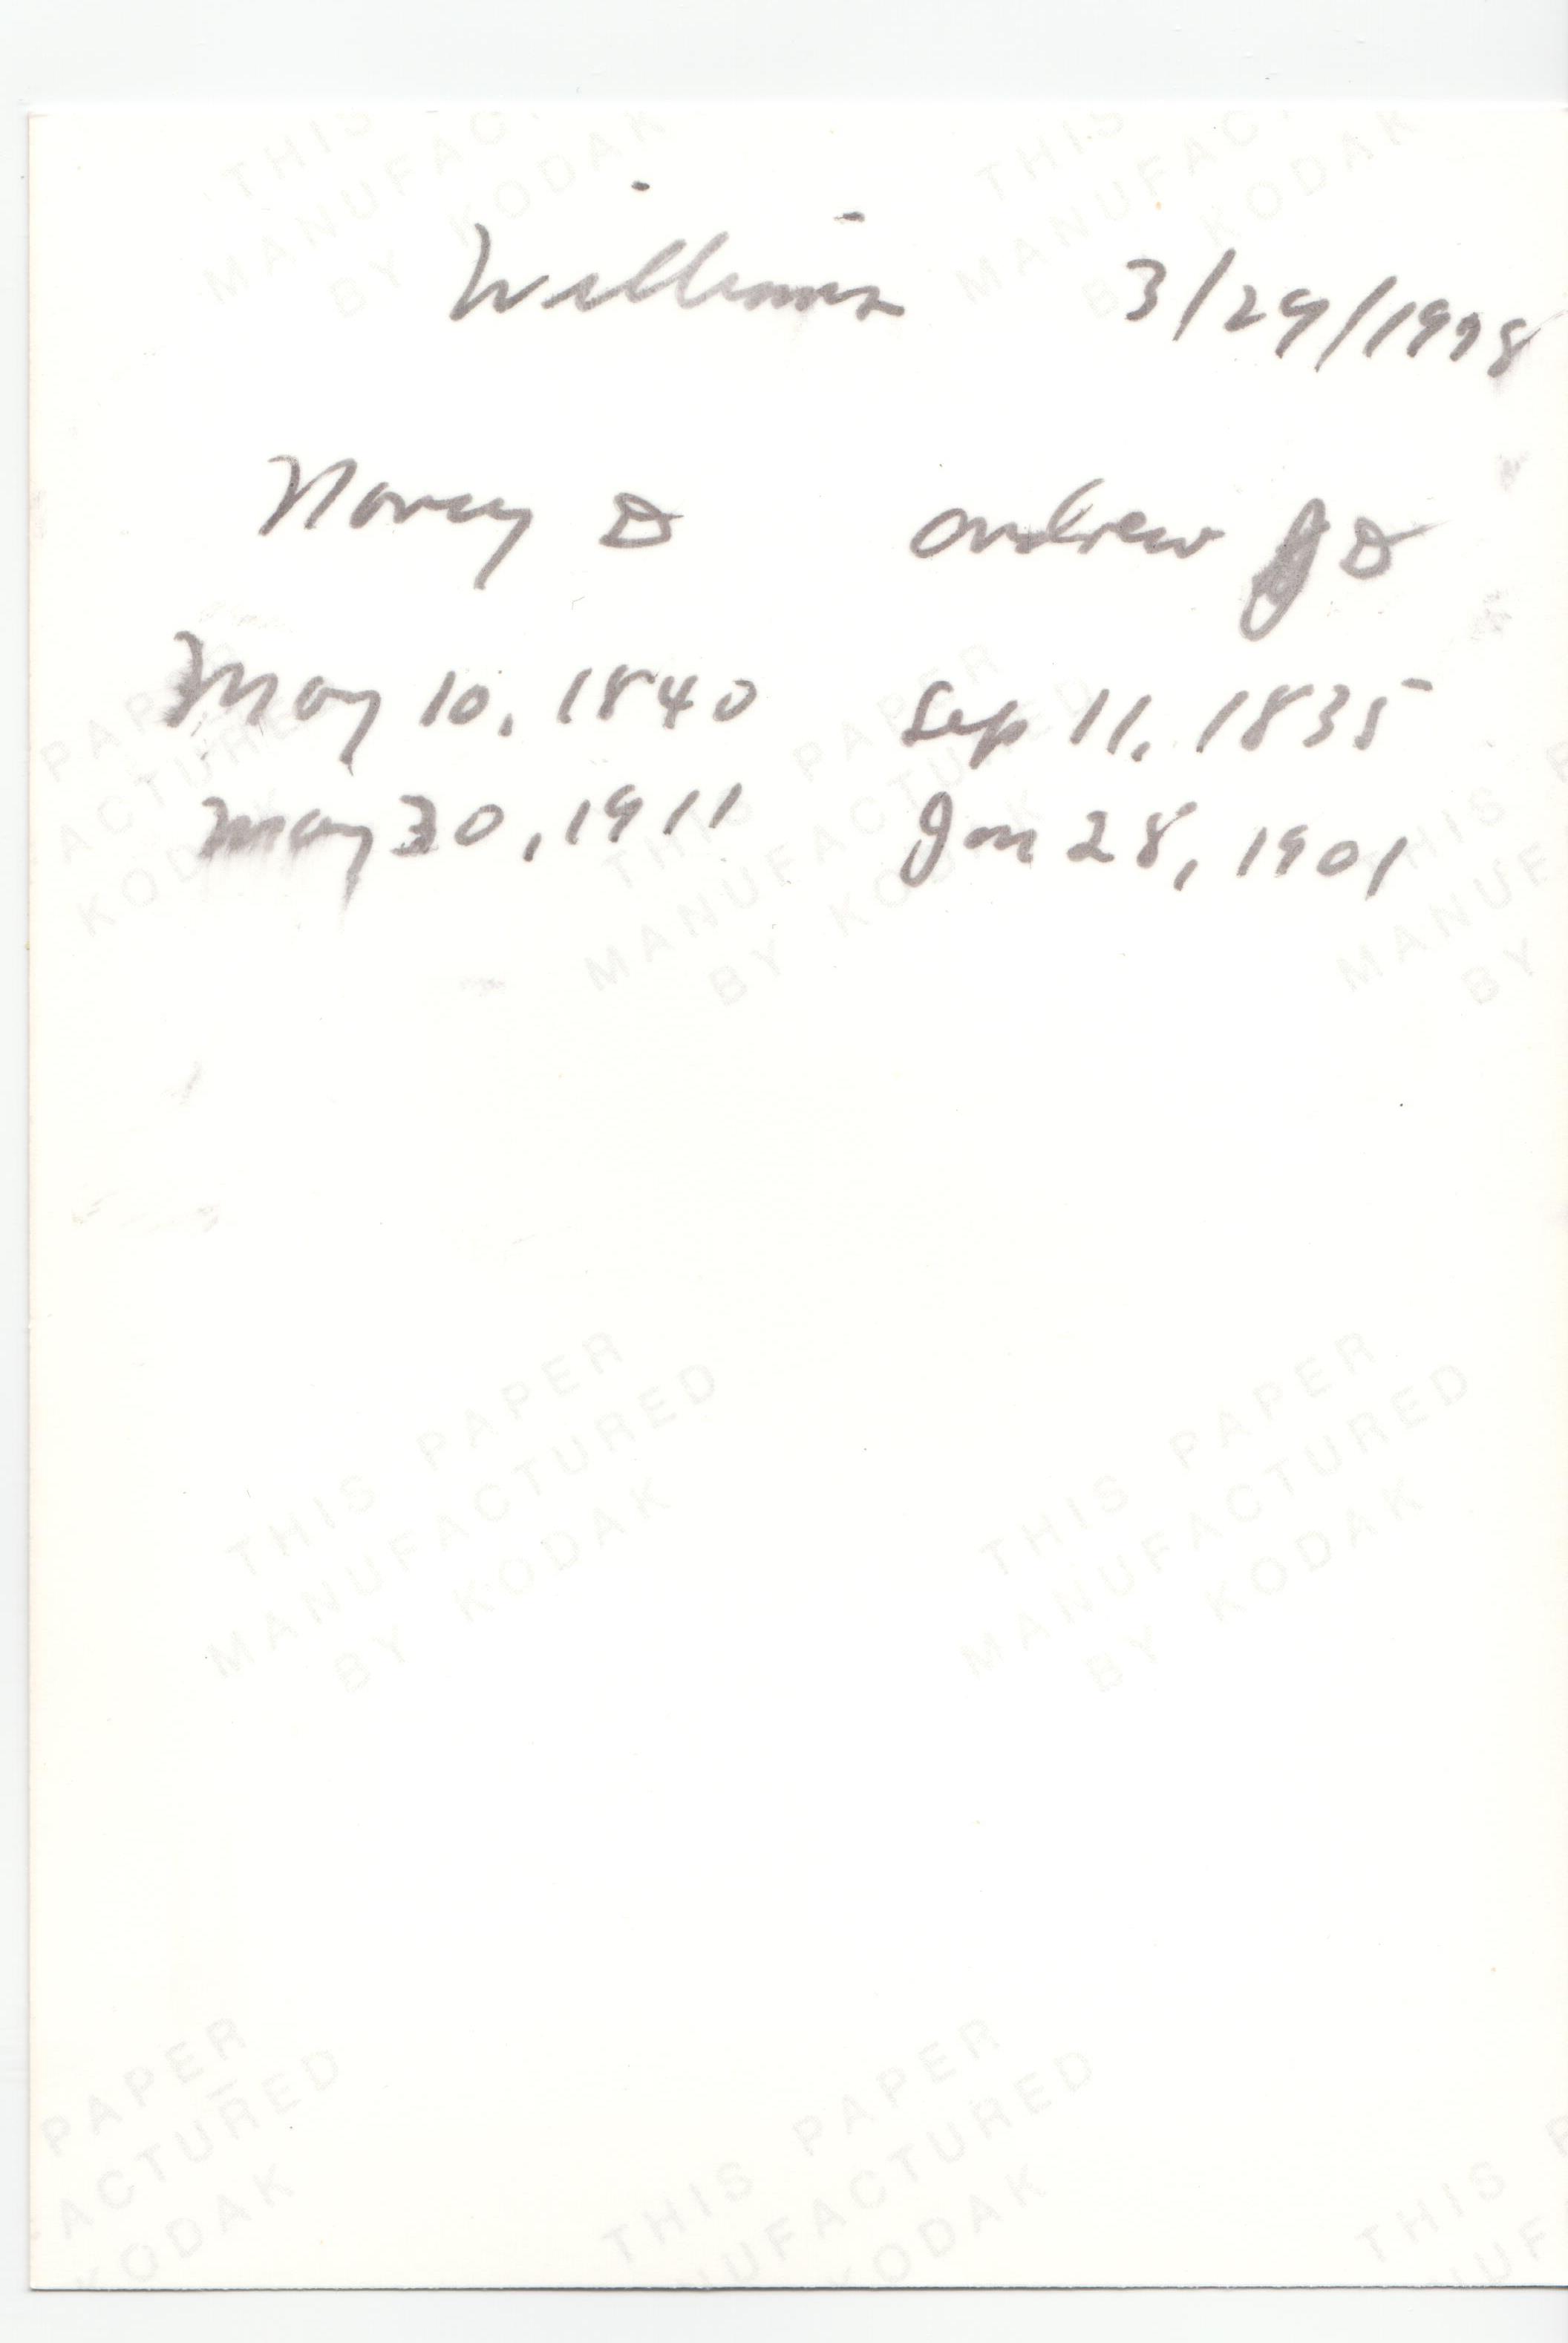 Williams 3/29/1998
Nancy D Andrew J D
May 10, 1840 Sep 11, 1835
May 30, 1911 Jan 28, 1901
THIS PAPER
MANUFACTURED
BY KODAK